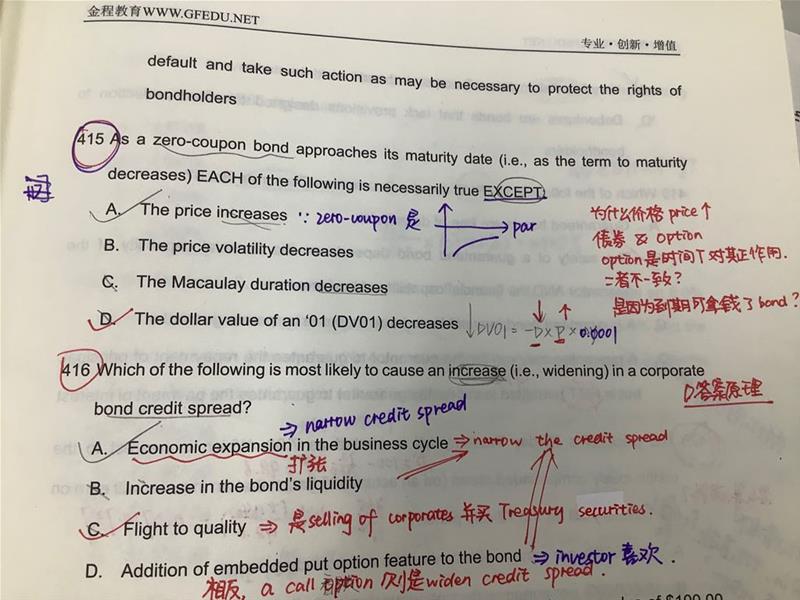 金程教育WWW.GFEDU.NET
专业·创新·增值
default and take such action as may be necessary to protect the rights of
bondholders
415 As a zero-coupon bond approaches its maturity date (i.e., as the term to maturity
decreases) EACH of the following is necessarily true EXCEPT:
A. The price increases ∵ zero-coupon 是 par
B. The price volatility decreases
C. The Macaulay duration decreases
D. The dollar value of an '01 (DV01) decreases ↓DV01 = -D×P×0.0001
为什么价格 price↑
债券 & option
option是时间T对其正作用.
二者不一致?
是因为到期可拿钱了bond?
416 Which of the following is most likely to cause an increase (i.e., widening) in a corporate
bond credit spread?
D答案原理
⇒ narrow credit spread
A. Economic expansion in the business cycle ⇒ narrow the credit spread
扩张
B. Increase in the bond's liquidity
C. Flight to quality ⇒ 是selling of corporates 并买 Treasury securities.
D. Addition of embedded put option feature to the bond ⇒ investor 喜欢.
相反, a call option 则是widen credit spread.